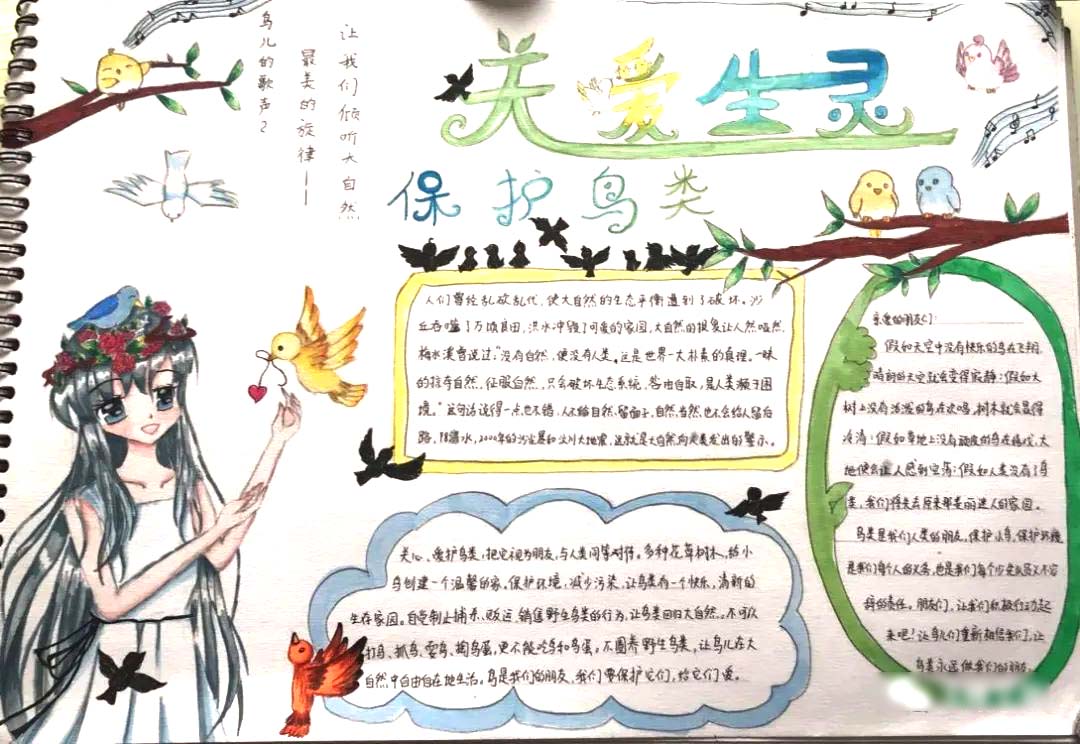 让我们倾听大自然
最美的旋律——
鸟儿的歌声
关爱生灵
保护鸟类
人们曾经乱砍乱伐，使大自然的生态平衡遭到了破坏。沙
丘吞噬了万顷良田，洪水冲毁了可爱的家园，大自然的报复让人然哑然。
梅水溪曾说过："没有自然，便没有人类。这是世界一大朴素的真理。一味
的掠夺自然，征服自然，只会破坏生态系统，咎由自取，是人类濒于困
境。"这句话说得一点也不错，人不给自然留面子，自然当然也不会给人留后
路，98洪水，2000年的沙尘暴和汶川大地震，这就是大自然向人类发出的警示。
关心、爱护鸟类，把它视为朋友，与人类同等对待。多种花草树木，给小
鸟创建一个温馨的家，保护环境，减少污染，让鸟类有一个快乐，清新的
生存家园。自觉制止捕杀、贩运、销售野生鸟类的行为，让鸟类回归大自然。不可以
打鸟、抓鸟、掏鸟蛋，更不能吃鸟和鸟蛋。不圈养野生鸟类，让鸟儿在大
自然中自由自在地生活。鸟是我们的朋友，我们要保护它们，给它们爱。
亲爱的朋友们：
假如天空中没有快乐的鸟在飞翔，
晴朗的天空就会变得寂静；假如大
树上没有活泼的鸟在欢唱，树木就会显得
冷清；假如草地上没有顽皮的鸟在嬉戏，大
地便会让人感到空荡；假如人类没有了鸟
类，我们将失去原来那美丽迷人的家园。
鸟类是我们人类的朋友，保护小鸟，保护环境
是我们每个人的义务，也是我们每个少先队员义不容
辞的责任。朋友们，让我们积极行动起
来吧！让鸟儿们重新相信我们，让
鸟类永远做我们的朋友。